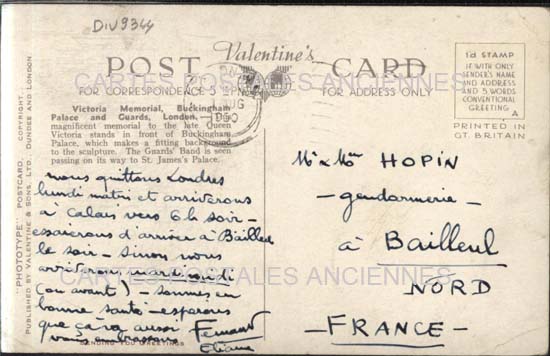 DIV9344
POST Valentine's CARD
FOR CORRESPONDENCE
FOR ADDRESS ONLY
1d STAMP
IF WITH ONLY
SENDER'S NAME
AND ADDRESS
AND 5 WORDS
CONVENTIONAL
GREETING
A
PRINTED IN
GT. BRITAIN
CARTES POSTALES ANCIENNES
Victoria Memorial, Buckingham
Palace and Guards, London.
magnificent memorial to the late Queen
Victoria stands in front of Buckingham
Palace, which makes a fitting background
to the sculpture. The Guards' Band is seen
passing on its way to St. James's Palace.
nous quittons Londres
lundi matin et arriverons
à Calais vers 6h soir -
essaierons d'arriver à Bailleul
le soir - sinon nous
arriverons mardi midi
(ou avant) - sommes en
bonne santé - espérons
que ça va aussi Fernand
vous embrassons Eliane
SENDING YOU GREETINGS
Mr & Mme HOPIN
- gendarmerie -
à Bailleul
NORD
- FRANCE -
CARTES POSTALES ANCIENNES
"PHOTOTYPE" POSTCARD. COPYRIGHT.
PUBLISHED BY VALENTINE & SONS, LTD., DUNDEE AND LONDON